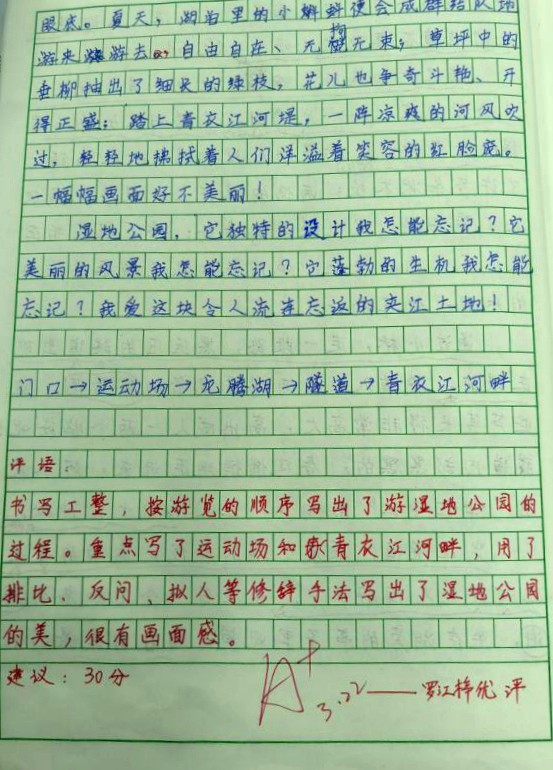 眼底。夏天，湖泊里的小蝌蚪便会成群结队地
游来游去，自由自在、无拘无束；草坪中的
垂柳抽出了细长的绿枝，花儿也争奇斗艳、开
得正盛；踏上青衣江河堤，一阵凉爽的河风吹
过，轻轻地拂拭着人们洋溢着笑容的红脸庞。
一幅幅画面好不美丽！
湿地公园，它独特的设计我怎能忘记？它
美丽的风景我怎能忘记？它蓬勃的生机我怎能
忘记？我爱这块令人流连忘返的夹江土地！
门口→运动场→龙腾湖→隧道→青衣江河畔
评语：
书写工整，按游览的顺序写出了游湿地公园的
过程。重点写了运动场和青衣江河畔，用了
排比、反问、拟人等修辞手法写出了湿地公园
的美，很有画面感。
建议：30分
A+
3.22——罗江梓优 评